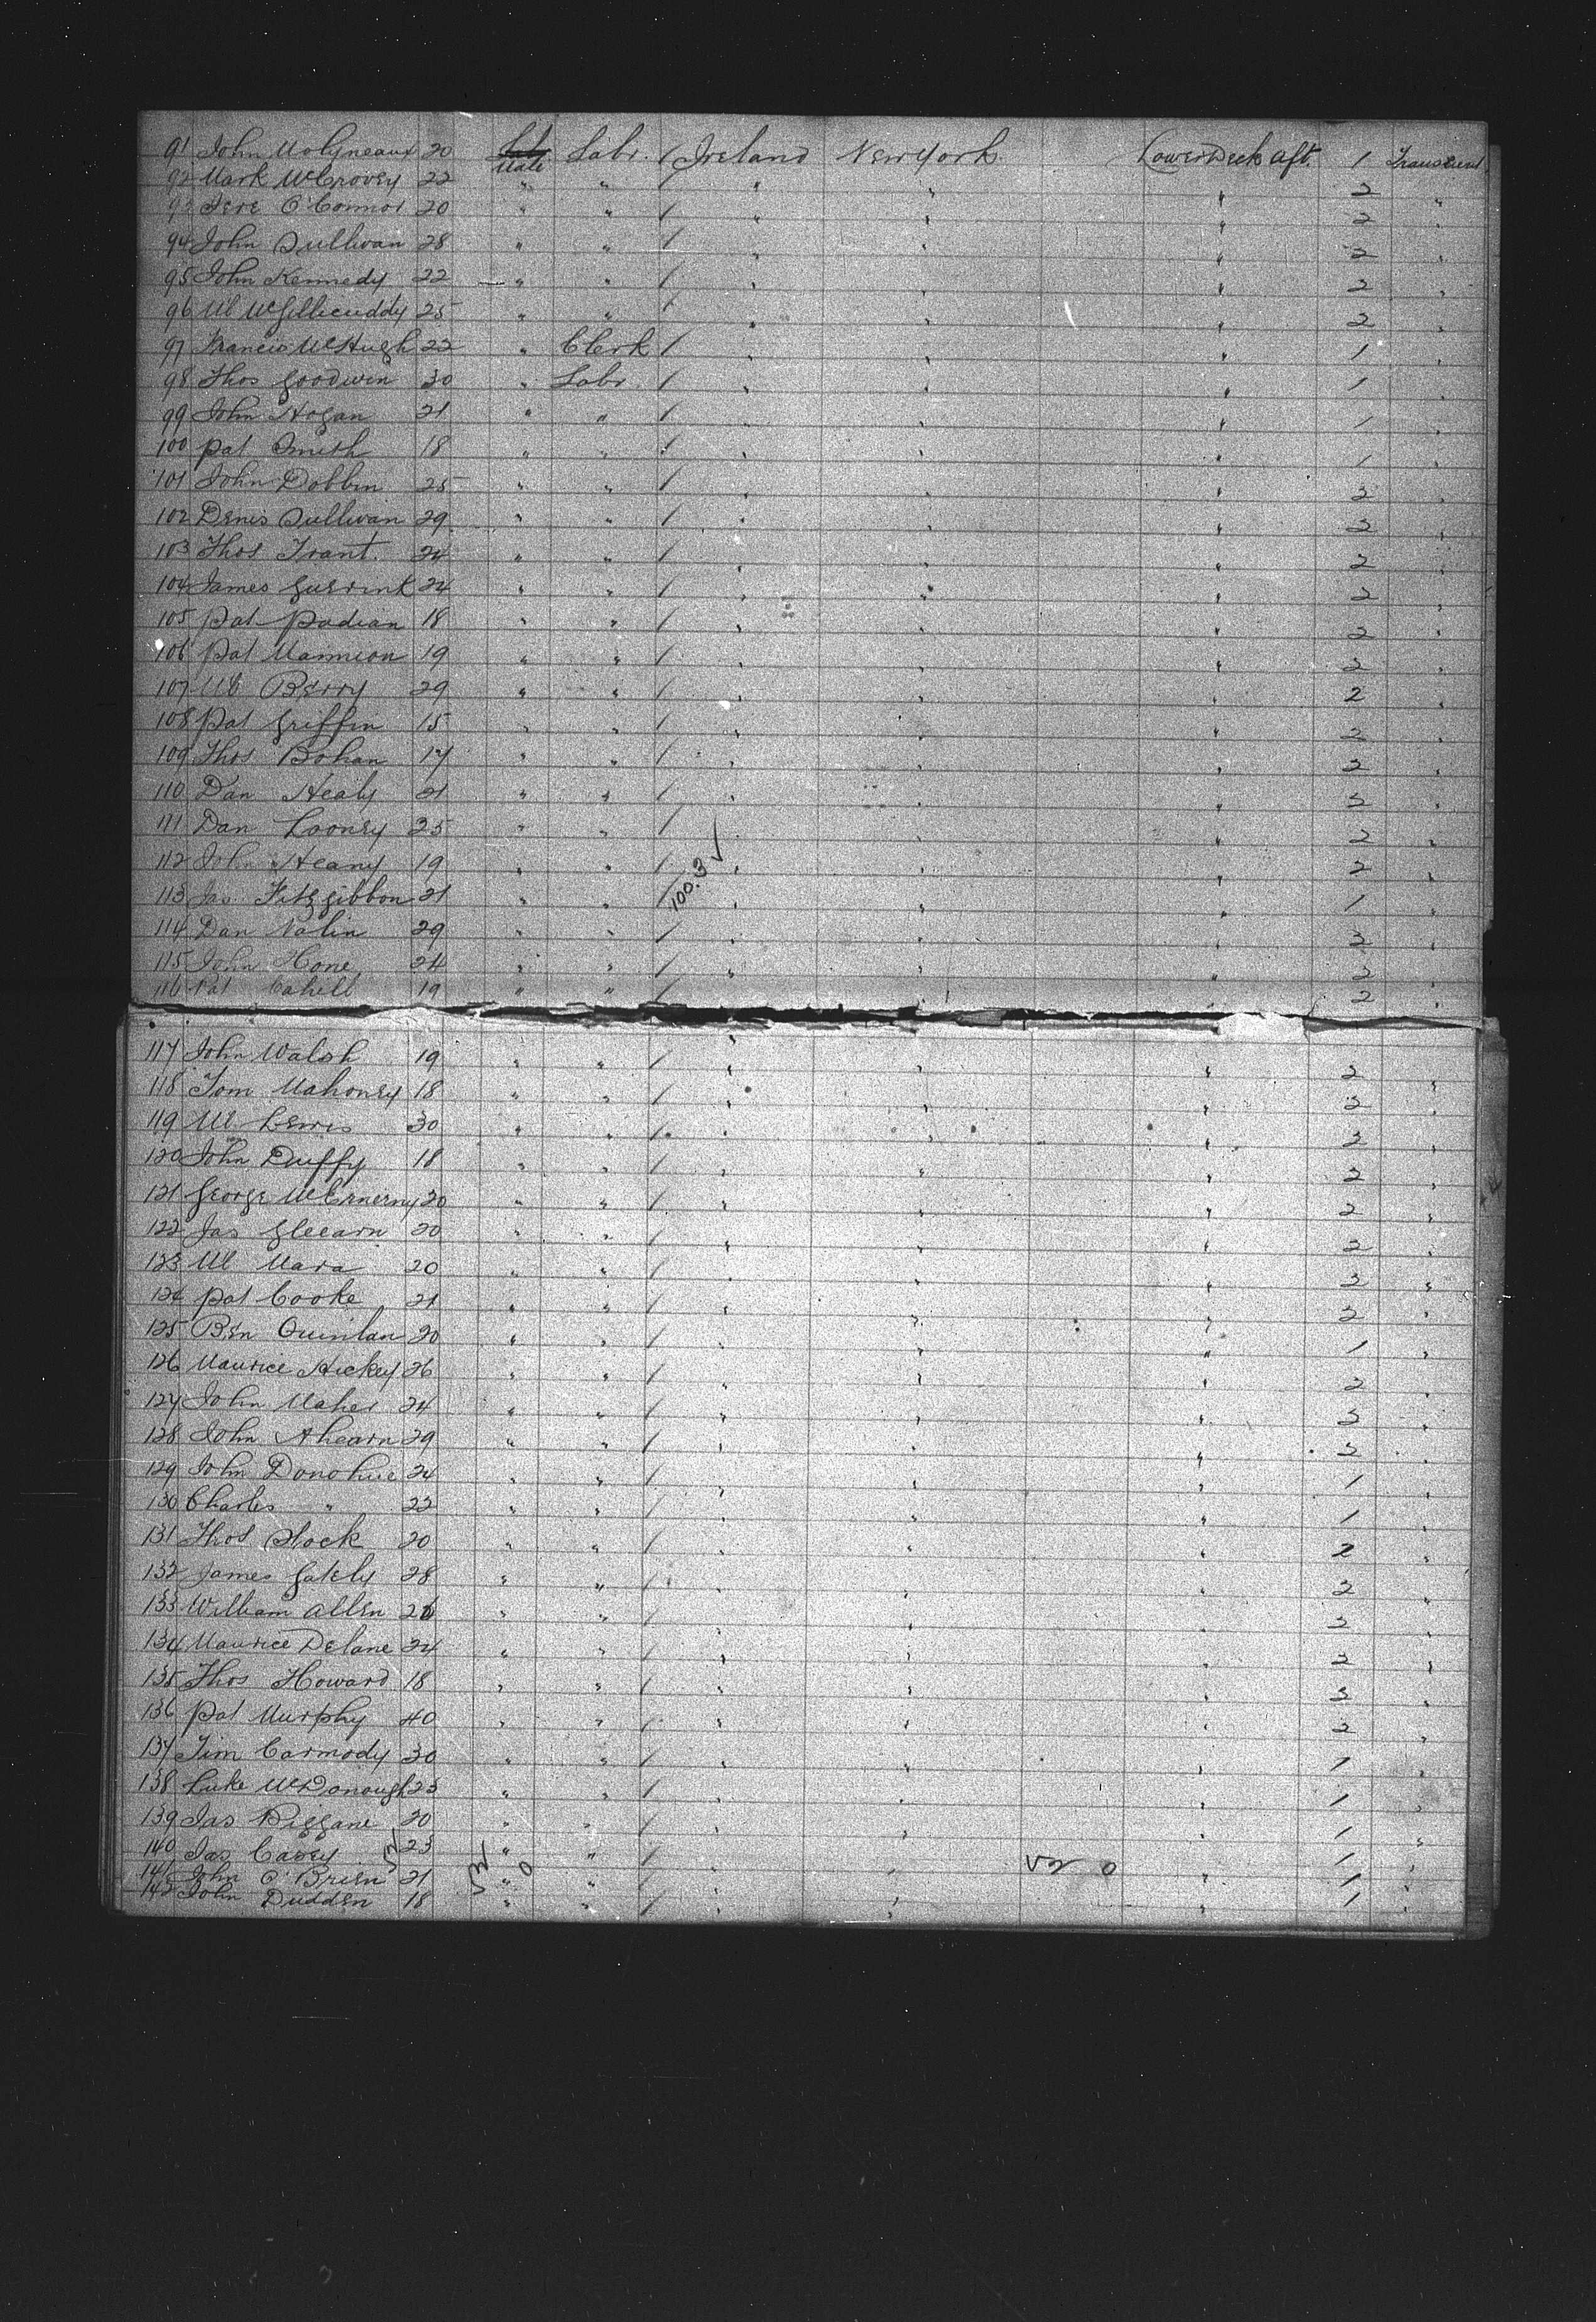 91 John Molyneaux 20 Male Labr. / Ireland New York Lower Deck aft. 1 Transient
92 Mark McCrovey 22 " " / " " " 2 "
93 Jere O'Connor 20 " " / " " " 2 "
94 John Sullivan 28 " " / " " " 2 "
95 John Kennedy 22 " " / " " " 2 "
96 Ml McGillicuddy 25 " " / " " " 2 "
97 Francis McHugh 22 " Clerk / " " " 1 "
98 Thos Goodwin 30 " Labr. / " " " 1 "
99 John Hogan 21 " " / " " " 1 "
100 Pat Smith 18 " " / " " " 1 "
101 John Dobbin 25 " " / " " " 2 "
102 Denis Sullivan 29 " " / " " " 2 "
103 Thos Trant. 24 " " / " " " 2 "
104 James 24 " " / " " " 2 "
105 Pat Padian 18 " " / " " " 2 "
106 Pat Mannion 19 " " / " " " 2 "
107 Ml Berry 29 " " / " " " 2 "
108 Pat Griffin 15 " " / " " " 2 "
109 Thos Bohan 17 " " / " " " 2 "
110 Dan Healy 21 " " / " " " 2 "
111 Dan Looney 25 " " / " " " 2 "
112 John Heany 19 " " / " " " 2 "
113 Jas Fitzgibbon 21 " " / 100.3 ✓ " " " 1 "
114 Dan Nolin 29 " " / " " " 2 "
115 John Hone 24 " " / " " " 2 "
116 Pat Cahill 19 " " / " " " 2 "
117 John Walsh 19 " " / " " " 2 "
118 Tom Mahoney 18 " " / " " " 2 "
119 Ml Lewis 30 " " / " " " 2 "
120 John Duffy 18 " " / " " " 2 "
121 George McEnerny 20 " " / " " " 2 "
122 Jas Gleearn 20 " " / " " " 2 "
123 Ml Mara 20 " " / " " " 2 "
124 Pat Cooke 21 " " / " " " 2 "
125 Ben Quinlan 20 " " / " " " 1 "
126 Maurice Hickey 26 " " / " " " 2 "
127 John Maher 24 " " / " " " 2 "
128 John Ahearn 29 " " / " " " 2 "
129 John Donohue 24 " " / " " " 1 "
130 Charles " 22 " " / " " " 1 "
131 Thos Slock 20 " " / " " " 2 "
132 James Gately 28 " " / " " " 2 "
133 William Allen " " / " " " 2 "
134 Maurice Delane 24 " " / " " " 2 "
135 Thos Howard 18 " " / " " " 2 "
136 Pat Murphy 40 " " / " " " 2 "
137 Tim Carmody 30 " " / " " " 1 "
138 Luke McDonough 23 " " / " " " 1 "
139 Jas Piggane 20 " " / " " " 1 "
140 Jas Casey 23 " " / " " " 1 "
141 John O'Brien 21 " " / " " " 1 "
142 John Dudden 18 " " / " " " 1 "